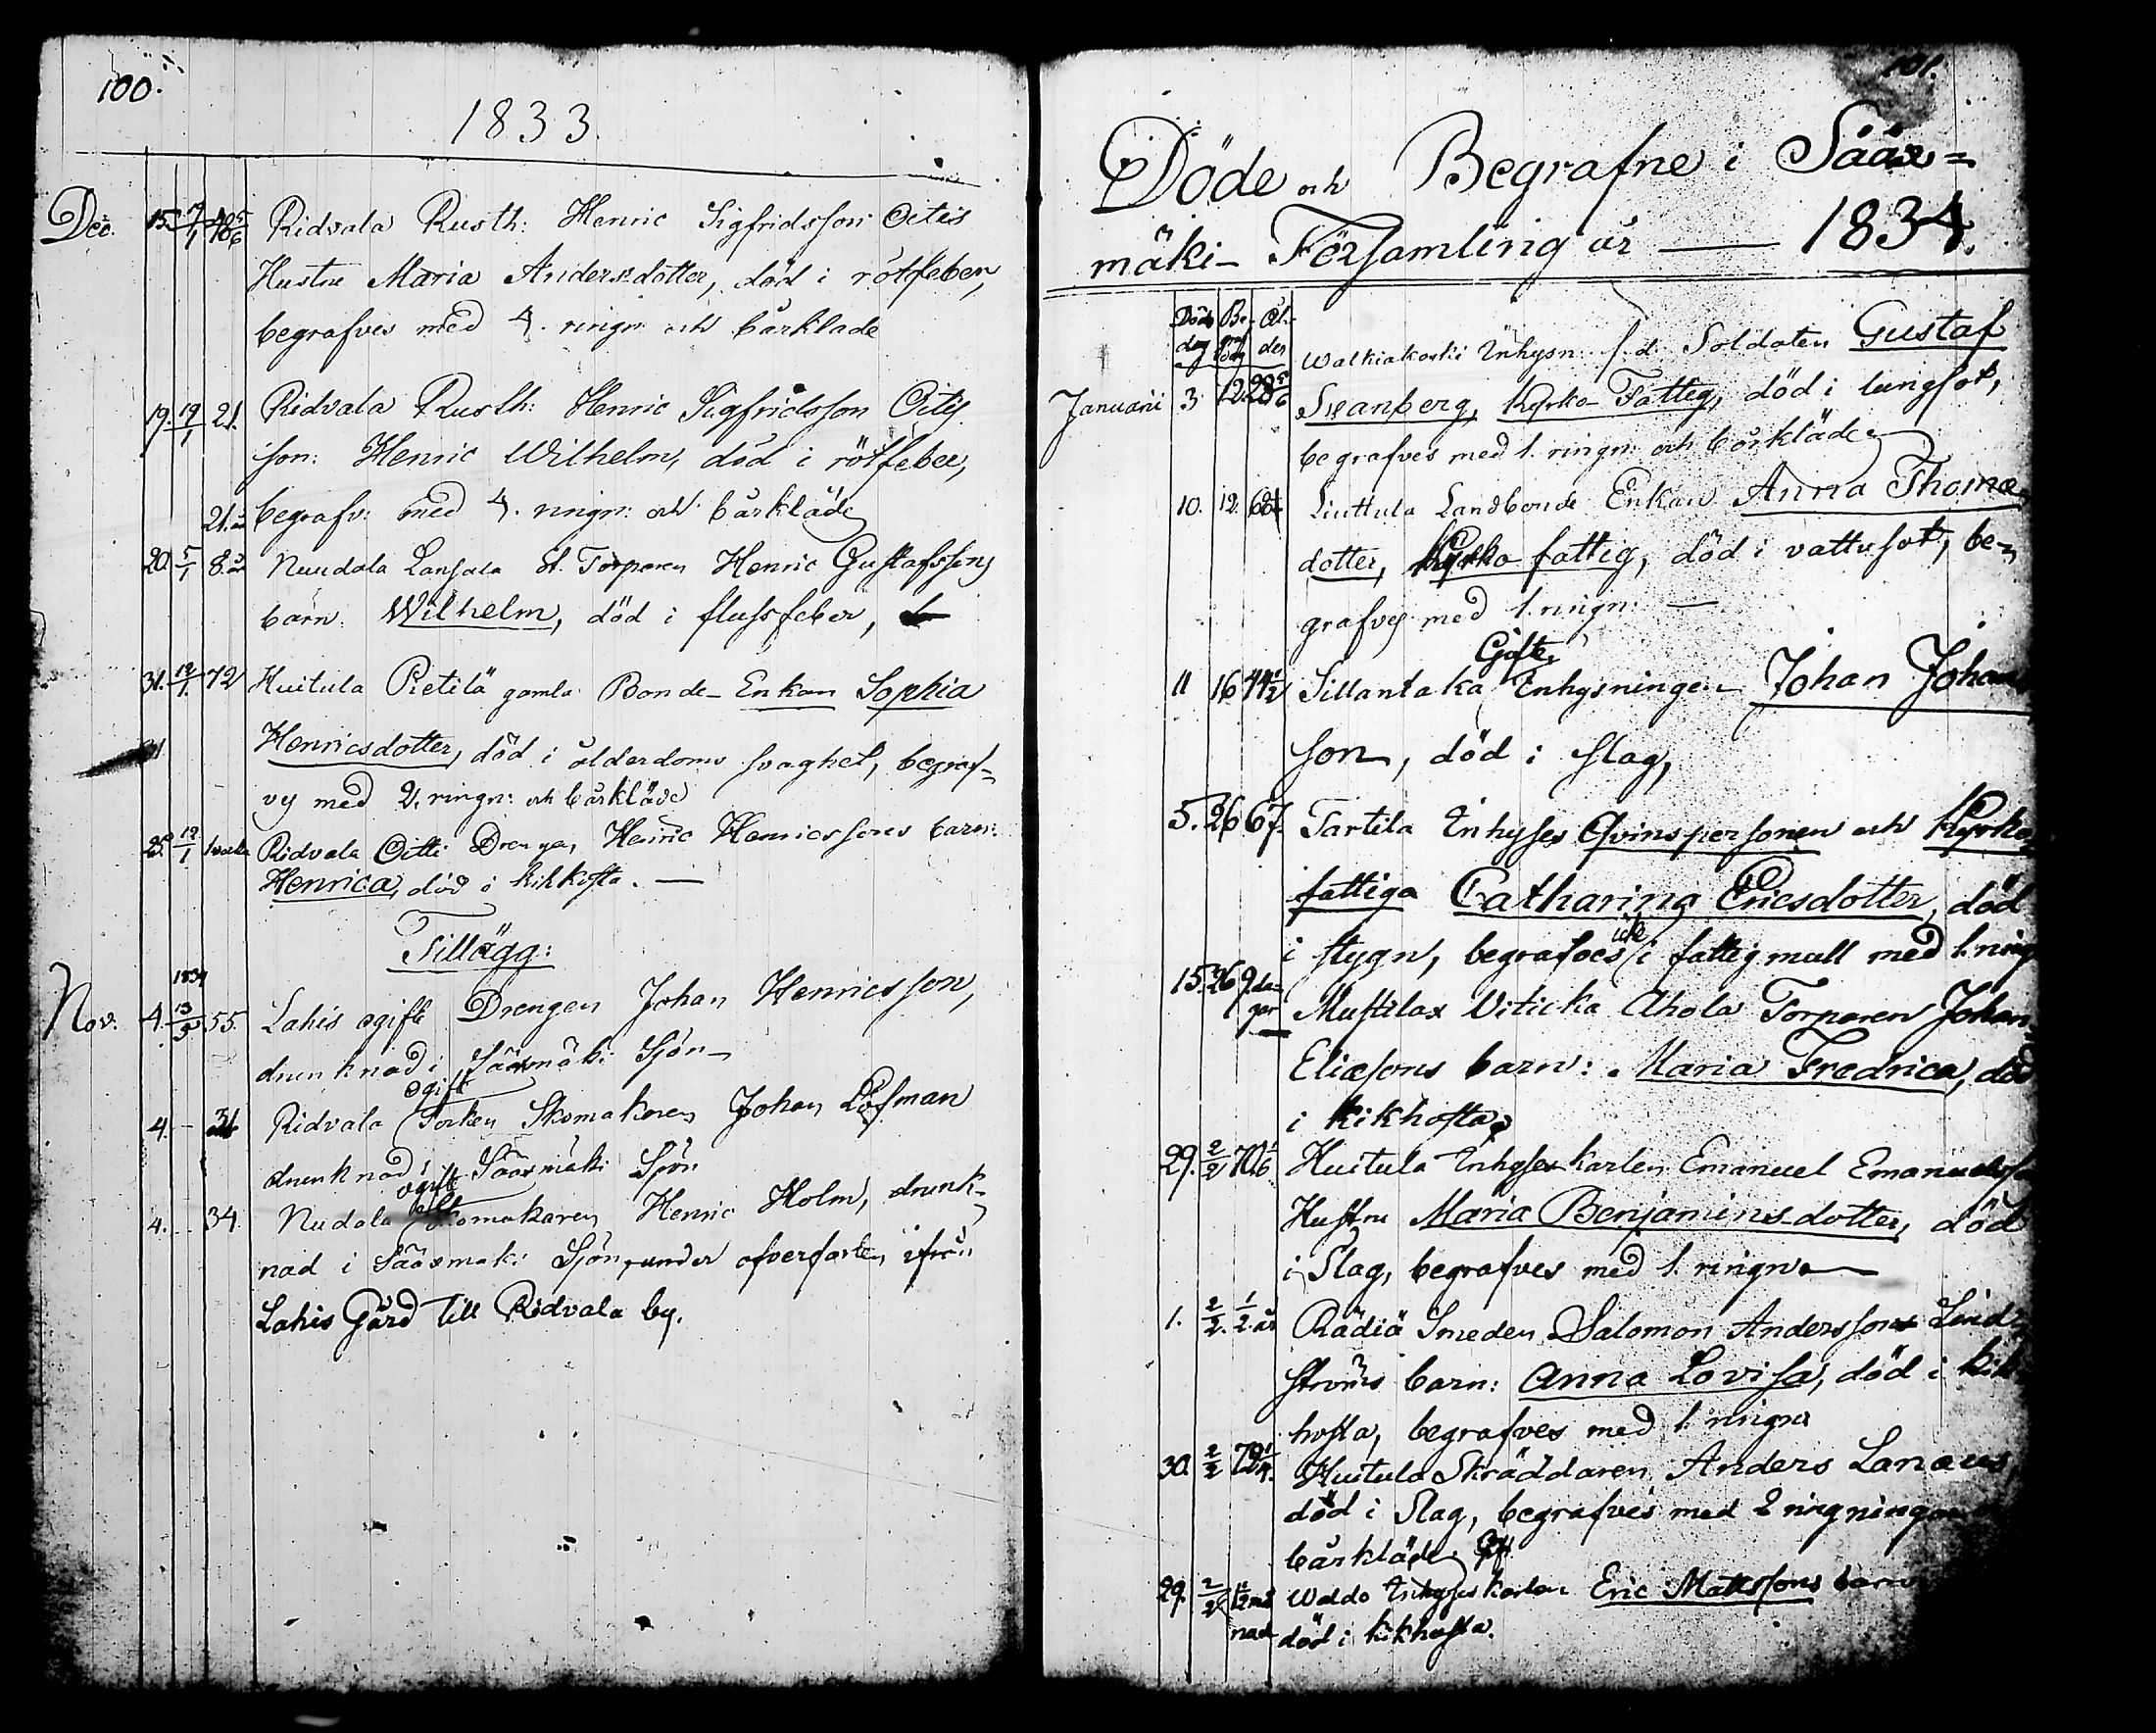 100.
1833.
Dec. 15. 7/1 48 5/6 Ridvala Rusth: Henric Sigfridsson Oitis
Hustru Maria Andersdotter, död i rötfeber,
begrafves med 4. ringn: och bårkläde
19. 19/1 21. Ridvala Rusth: Henric Sigfridsson Oitis
son: Henric Wilhelm, död i rötfeber,
21. år begrafv: med 4. ringn: och bårkläde
20. 5/1 8. år Nuudala Lansala Torparen Henric Gustafssons
barn: Wilhelm, död i flussfeber,
31. 12/1 72 Huitula Pietilä gamla Bonde-Enkan Sophia
31 Henricsdotter, död i ålderdoms svaghet, begraf-
ves med 2. ringn: och bårkläde
12/1 Ridvala Oitti Drengen Henric Henricssons barn:
Henrica, död i kikhosta. —
Tillägg:
1834
Nov. 4. 13/5 55. Lahis ogifte Drengen Johan Henricsson,
drunknad i Sääxmäki Sjön—
ogift
4. — Ridvala Sorken Skomakaren Johan Löfman
drunknad i Sääxmäki Sjön
ogift
4. — 34 Nudala Skomakaren Henric Holm, drunk-
nad i Sääxmäki Sjön, under öfverfarten ifrån
Lahis Gård till Ridvala by.
101.
Döde och Begrafne i Sääx=
mäki- Församling år — 1834.
Döds dag Be- graf dag Ål- der
Walkiakoski Inhysn: f. d. Soldaten Gustaf
Januari 3. 12. 28 5/6 Svanberg, Kyrko-Fattig, död i lungsot,
begrafves med 1. ringn: och bårkläde
10. 12. Liuttula Landbonde Enkan Anna Thomæ
dotter, Kyrko fattig, död i vattusot, be-
grafves med 1. ringn: —
Gifte
11 16 44 1/2 Sillantaka Inhysningen Johan Johans
son, död i slag,
5. 26 67. Tartila Inhyses Qvinspersonen och Kyrko
fattiga Catharina Ericsdotter, död
icke
i stygn, begrafves i fattigmull med 1. ring
15. 26 9 da- gar Muttilax Viticka Ahola Torparen Johan
Eliæsons barn: Maria Fredrica, död
i kikhosta,
29. 2/2 70 1/6 Huitula Inhyseskarlen Emanuel Emanuelsso
Hustru Maria Benjaminsdotter, död
i Slag, begrafves med 1. ringn: —
1. 2/2. 1/2. år Rädiä Smeden Salomon Anderssons Lind-
ströms barn: Anna Lovisa, död i kik-
hosta, begrafves med 1. ringn:
30. 2/2 72 1/4. Huitula Skräddaren Anders Lanæus,
död i Slag, begrafves med 2 ringningar
bårkläde.
29. 2/2 må nad Waldo Inhyseskarlen Eric Mattssons barn
död i kikhosta.